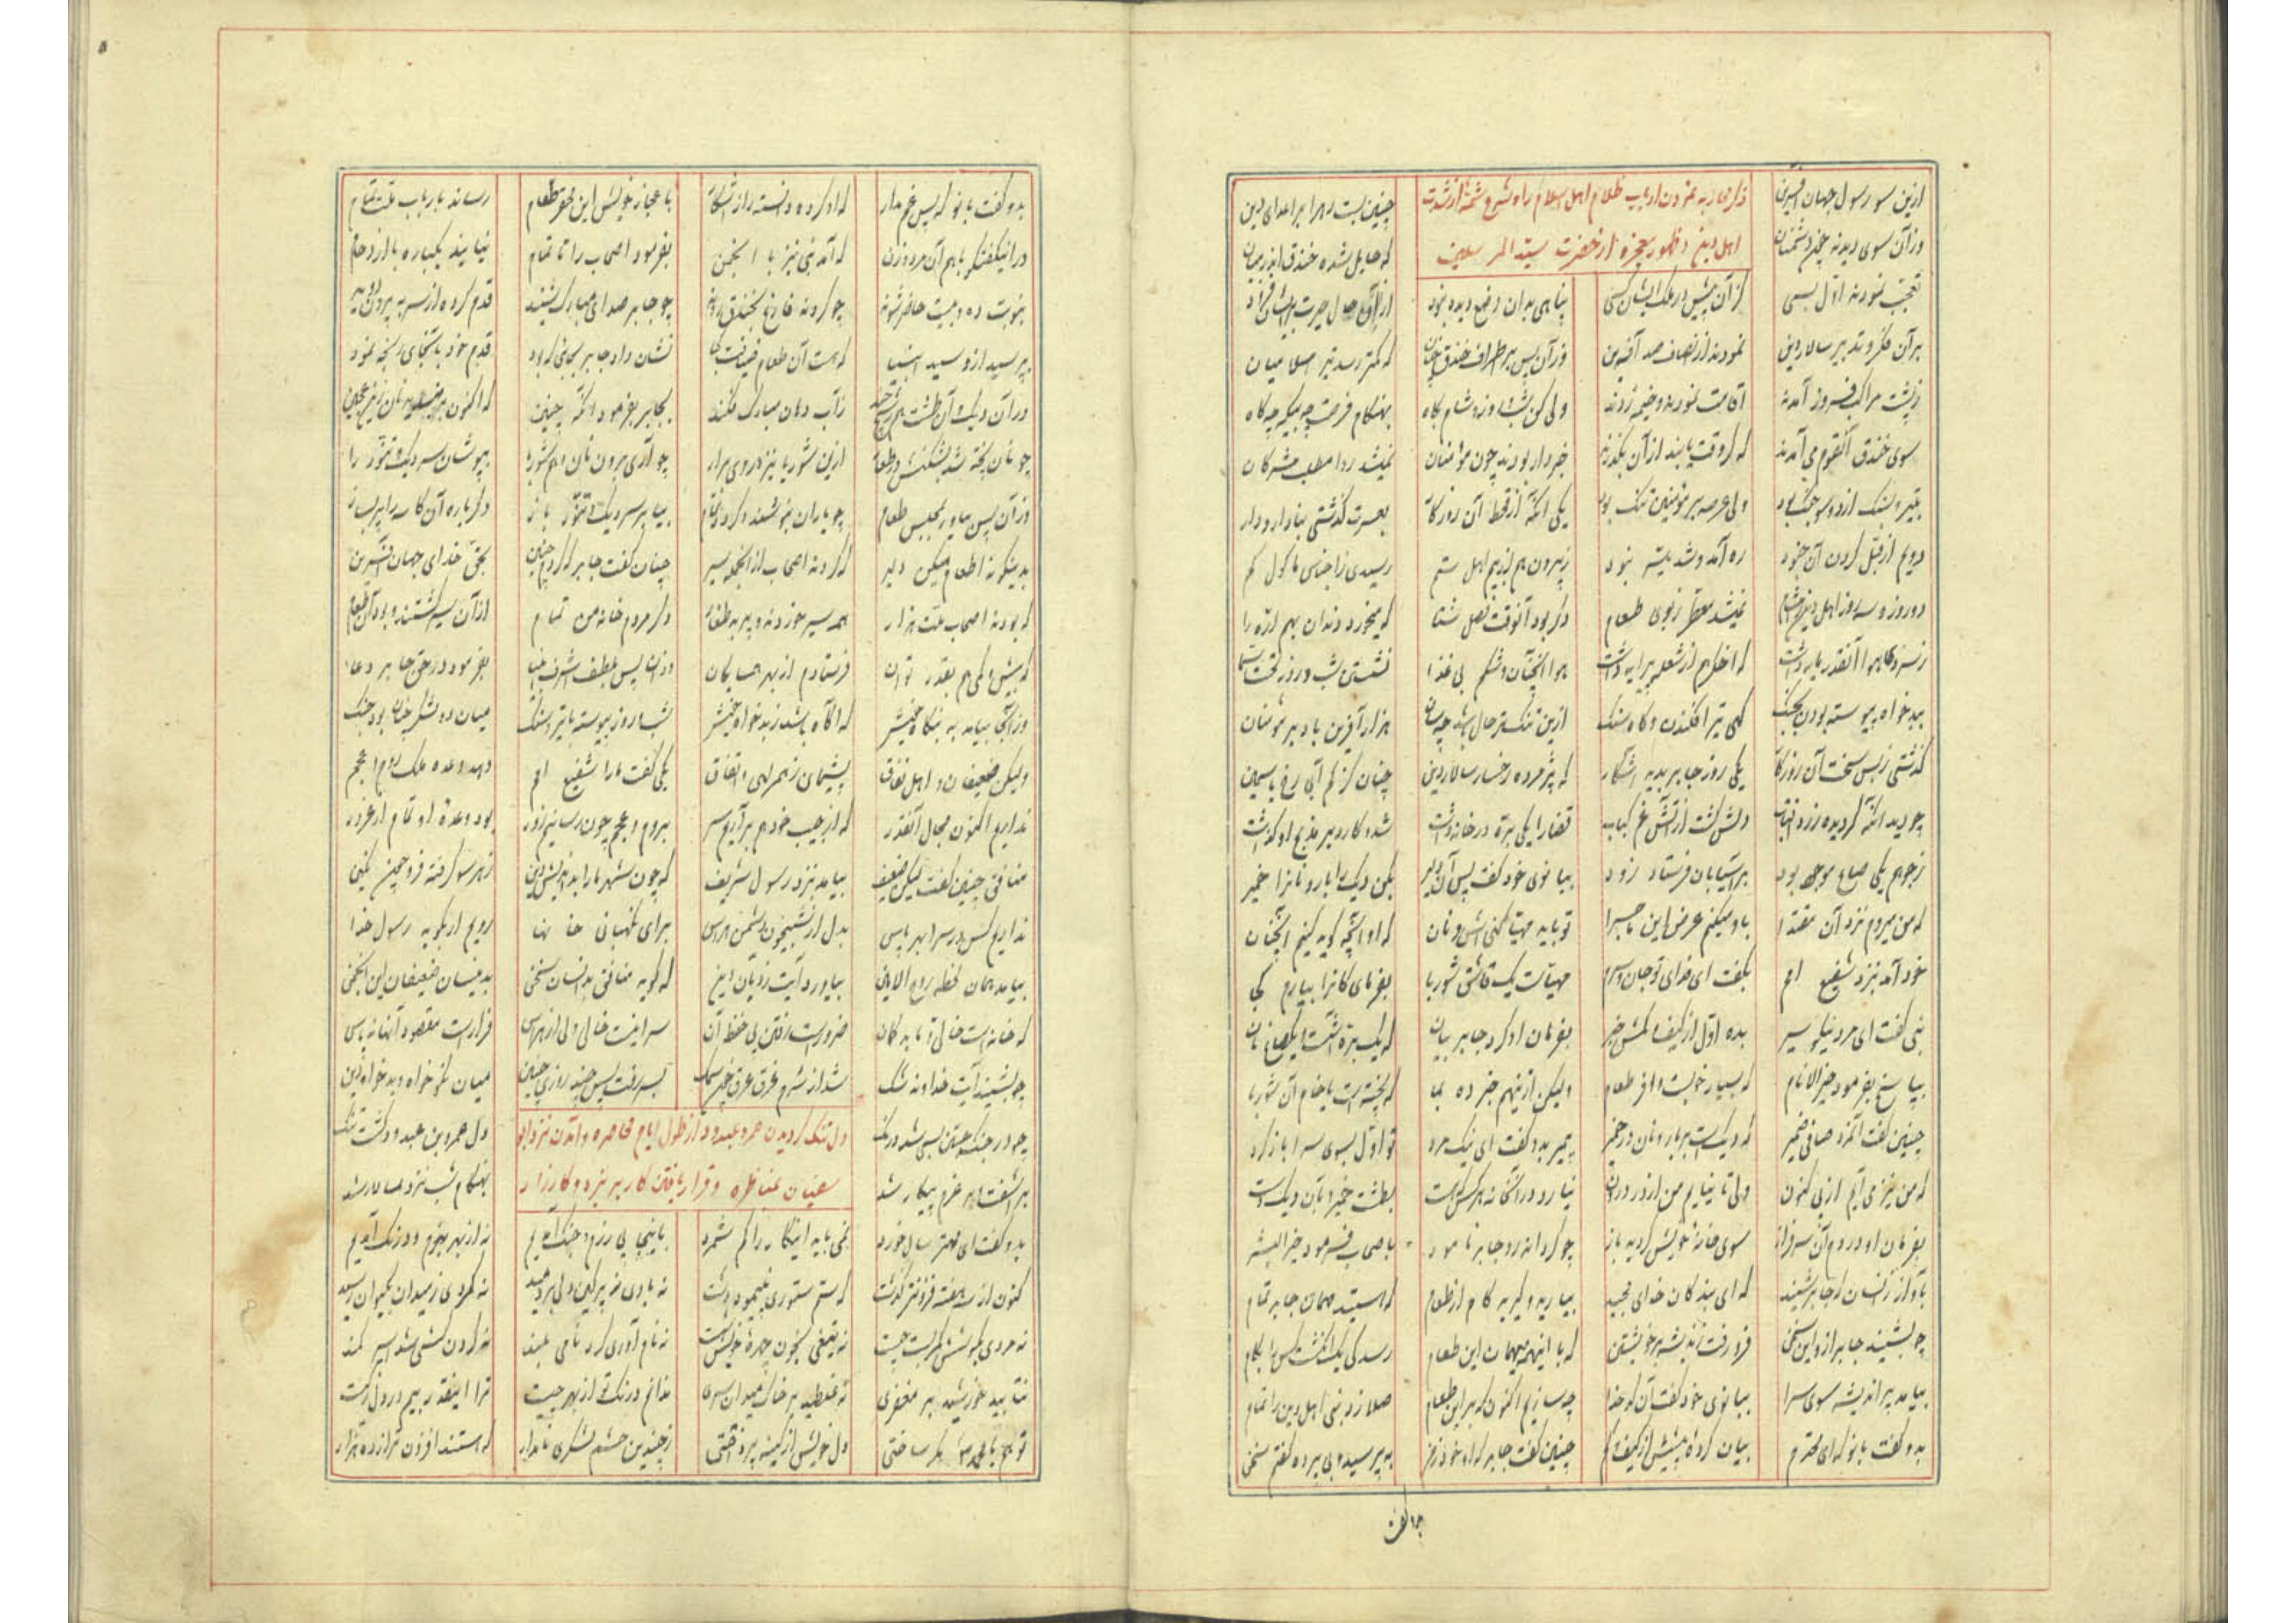 ازین سو رسول جهان آفرین
وز آن سوی دیدند چون دشمنان
چنین بست ره را بر اعدای دین
که حایل شده خندق اندر میان
اهل دین و ظهور معجزه از حضرت سید المرسلین
تعجب نمودند اول بسی
کز آن پیش در ملک ایشان کسی
بنا هی بدان وضع دیده نبود
بر آن فکر و تدبیر سالار دین
نمودند از انصاف صد آفرین
وز آن پس بر اطراف خندق چنان
که کمتر رسد تیر اسلامیان
ز پشت مراکب فرود آمدند
اقامت نمودند و خیمه زدند
ولی کن شب و روز و شام و پگاه
بهنگام فرصت چه بیگه چه گاه
سوی خندق آن قوم می آمدند
که گر وقت یابند از آن بگذرند
خبردار بودند چون مؤمنان
نمیشد روا مطلب مشرکان
بتیر و بسنگ از دو سو جنگ بود
ولی عرصه بر مؤمنین تنگ بود
یکی آنکه از قحط آن روزگار
بعسرت گذشتی بنادار و دار
دویم از قبل کردن آن جنود
ره آمد و شد میسر نبود
ز بیرون هم از بیم اهل ستم
رسیدی ز اجناس ماکول کم
دو روز و سه روز اهل دین را مشام
نمیشد معطر ز بوی طعام
دگر بود آنوقت فصل شتا
که میخورد دندان بهم اژه را
ز سردی هوا آنقدر مایه داشت
که اخگر هم از شعله پیرایه داشت
هوا آنچنان و شکم بی غذا
نشستی شب و روز تحت سما
ببدخواه پیوسته بودن بجنگ
گهی تیر افکندن و گاه سنگ
ازین تنگتر حال باشد چسان
هزار آفرین باد بر مؤمنان
گذشتی ز بس سخت آن روزگار
یکی روز جابر بدید آشکار
که پژمرده رخسار سالار دین
چنان کز کم آبی رخ یاسمین
چو دید آنکه گردیده زرد آفتاب
دلش گشت از آتش غم کباب
قضا را یکی بره در خانه داشت
شد و کارد بر مذبح او گذاشت
ز جو هم یکی صاع موجود بود
بر آسیابان فرستاد زود
ببانوی خود گفت پس آن دلیر
بکن دیگ را بار و نان را خمیر
که من میروم نزد آن مقتدا
باو میکنم عرض این ماجرا
تو باید مهیا کنی آش و نان
که او آنچه گوید کنیم آنچنان
خود آمد بنزد شفیع امم
بگفت ای فدای تو جان و سرم
مهیاست یک قاشق شوربا
بفرمای کانرا بیارم کجا
نبی گفت ای مرد نیکو سیر
بده اول از کیف و کمش خبر
بفرمان او کرد جابر بیان
که یک بره است و یک صاع نان
بپاسخ بفرمود خیر الانام
که بسیار خوبست و وافر طعام
ولیکن ازینهم خبر ده بما
که پخته است یا خام آن شوربا
چنین گفت آنمرد صافی ضمیر
که دیگ است بر بار و نان در خمیر
پیمبر بدو گفت ای نیک مرد
تو اول بسوی سرا باز گرد
که من نیز می آیم از پی کنون
ولی تا نیایم من از در درون
نیارد در آنخانه هر کس که است
بطشت خمیر و بآن دیگ دست
بفرمان او در دم آن سرفراز
سوی خانهٔ خویش گردید باز
چو گردانه رو جابر نامور
باصحاب فرمود خیر البشر
بآواز زانسان که جابر شنید
که ای بندگان خدای مجید
بیایید و گیرید کام از طعام
که هستید مهمان جابر تمام
چو بشنید جابر ازو این سخن
فرو رفت ز اندیشه بر خویشتن
که با اینهمه میهمان این طعام
رسد کی یک انگشت کس را بکام
بیامد پر اندیشه سوی سرا
ببانوی خود گفت آن کدخدا
چه سازیم اکنون که بر این طعام
صلا زد نبی اهل دین را تمام
بدو گفت بانو که ای محترم
بیان کرده پیشش از کیف و کم
چنین گفت جابر که او خود ز من
بپرسید و بی پرده گفتم سخن
بدو گفت
بدو گفت بانو که پس غم مدار
که او کرده دانسته راز آشکار
باعجاز خویش این محقر طعام
رساند بارباب ملت تمام
در این گفتگو با هم آن مرد و زن
که آمد نبی نیز با انجمن
بفرمود اصحاب را تا تمام
نیایند یکباره با ازدحام
بنوبت ده و بیست حاضر شوند
چو گردند فارغ بخندق روند
چو جابر صدای مبارک شنید
قدم کرده از سر به بیرون دوید
بپرسید ازو سید انبیا
که هست آن طعام ضیافت کجا
نشان داد جابر بجائی که بود
قدم خود بآنجای رنجه نمود
در آن دیگ و آن طشت
ز آب دهان مبارک فکند
بجابر بفرمود آنگه چنین
چو نان پخته شد بشکنش در طعام
ازین شوربا نیز بر وی برار
چو آری برون نان و هم شوربا
بپوشان سر دیگ و تنور را
وز آن پس بیاور بمجلس طعام
بیا بر سر دیگ و تنور باز
دگر باره آن کاسه را پر بساز
بدینگونه اطعام میکن دلیر
که گردند اصحاب از آنجمله سیر
چنان گفت جابر که کردم چنین
بحق خدای جهان آفرین
که بودند اصحاب ملت هزار
همه سیر خوردند
دگر مردم خانهٔ من تمام
از آن سیر گشتند و بود آن طعام
که بیش و کمی هم بقدر توان
فرستادم از بهر همسایگان
وزان پس بلطف اشرف انبیا
بفرمود در حق جابر دعا
وز آنجا بیامد به بنگاه خویش
که آگاه باشد ز بدخواه خویش
شب و روز پیوسته با تیر و سنگ
میان دو لشکر چنان بود جنگ
ولیکن ضعیفان و اهل نفاق
پشیمان ز همرهی و اتفاق
یکی گفت ما را شفیع امم
دهد وعده ملک روم و عجم
نداریم اکنون مجال آنقدر
که از جیب خود هم برآریم سر
بروم و عجم چون رسانیم زور
بود وعدهٔ او تمام از غرور
منافق چنین گفت لیکن ضعیف
بیامد بنزد رسول شریف
که چون شهر ما را بداندیش دین
ز هر سو گرفته فرو چون نگین
نداریم کس در سرا بهر پاس
بدل از شبیخون دشمن هراس
برای نگهبانی خانها
رویم ار بگوید رسول خدا
بیامد همان لحظه روح الامین
بیاورد آیت ز دیان دین
که گوید منافق بدانسان سخن
بدینسان ضعیفان این انجمن
که خانه است خالی و باید کنون
ضرور است رفتن پی حفظ آن
سرا نیست خالی ولی از هراس
فرار است مقصود آنها نه پاس
چو بشنید آیت خداوند شک
بسر رفت پس چند روزی چنین
میان نکو خواه و بدخواه دین
دل تنگ گردیدن عمرو عبدود از طول ایام محاصره و آمدن نزد ابو
سفیان بمناظره و قرار یافتن کار بر نبرد و کارزار
چو در جنگ جستن بسی شد درنگ
دل عمرو بن عبدود گشت تنگ
برآشفت و بر عزم پیکار شد
بهنگام شب نزد سالار شد
بدو گفت ای مهتر سال خورد
نمی باید این کار را کم شمرد
باینجا پی رزم و جنگ آمدیم
نه از بهر بزم و درنگ آمدیم
کنون از سه هفته فزونتر گذشت
که سم ستوری نپیمود دشت
نه گردی ز میدان بکیوان رسید
نه مردی بکوشش کمر بست چست
نه تیغی بخون چهرهٔ خویش شست
نه نام آوری کرد نامی بلند
نه گردن کشی شد اسیر کمند
نتابید خورشید بر مغفری
نه غلطید بر خاک میدان سری
ندانم درنگ تو از بهر چیست
ترا اینقدر بیم در دل ز کیست
دل خویش از کینه پرداختی
ز چندین حشم لشکری نامدار
که هستند افزون تر از ده هزار